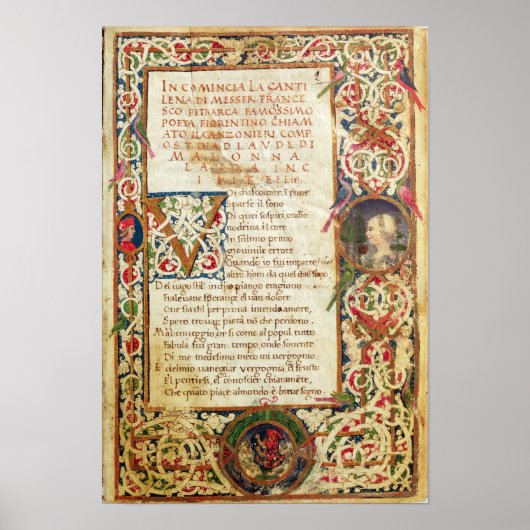 IN COMINCIA LA CANTI
LENA DI MESSER FRANCE
SCO PETRARCA FAMOSISSIMO
POETA FIORENTINO CHIAM
ATO IL CANZONIERI COMP
OSTO AD LAVDE DI
MADONNA
LA INC
V
Oi ch ascoltate ī rime
Sparse il sono
Di quei sospiri ondio
nodriva il core
In sul mio primo
giovinile errore
Quando io fui imparte
altro hom da quel chio sono
Del vago stil inchio piango et ragiono
Fra le vane speranze el van dolore
Que sia chi per prova intenda amore,
Spero trovar pieta nō che perdono.
Ma ben veggio, or si come al popul tutto
Fabula fui gran tempo, onde sovente
Di me medesimo meco mi vergogno
E del mio vaneggiar vergogna e il fructo
El pentirsi, el conoscier chiaramēte,
Che quāto piace al mondo è breve sogno